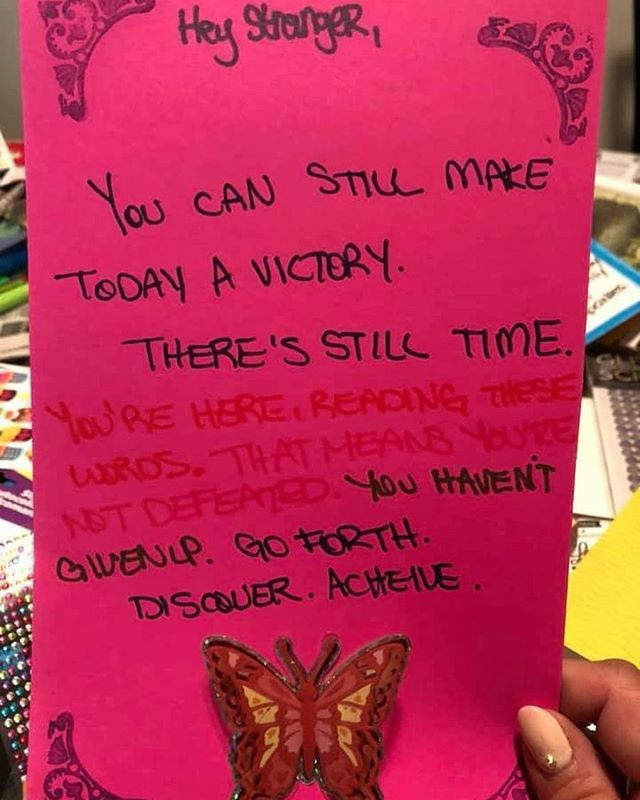 Hey Stranger,
You CAN STILL MAKE
TODAY A VICTORY.
THERE'S STILL TIME.
You'RE HERE, READING THESE
WORDS. THAT MEANS YOU'RE
NOT DEFEATED. YOU HAVEN'T
GIVEN UP. GO FORTH.
DISCOVER. ACHEIVE.